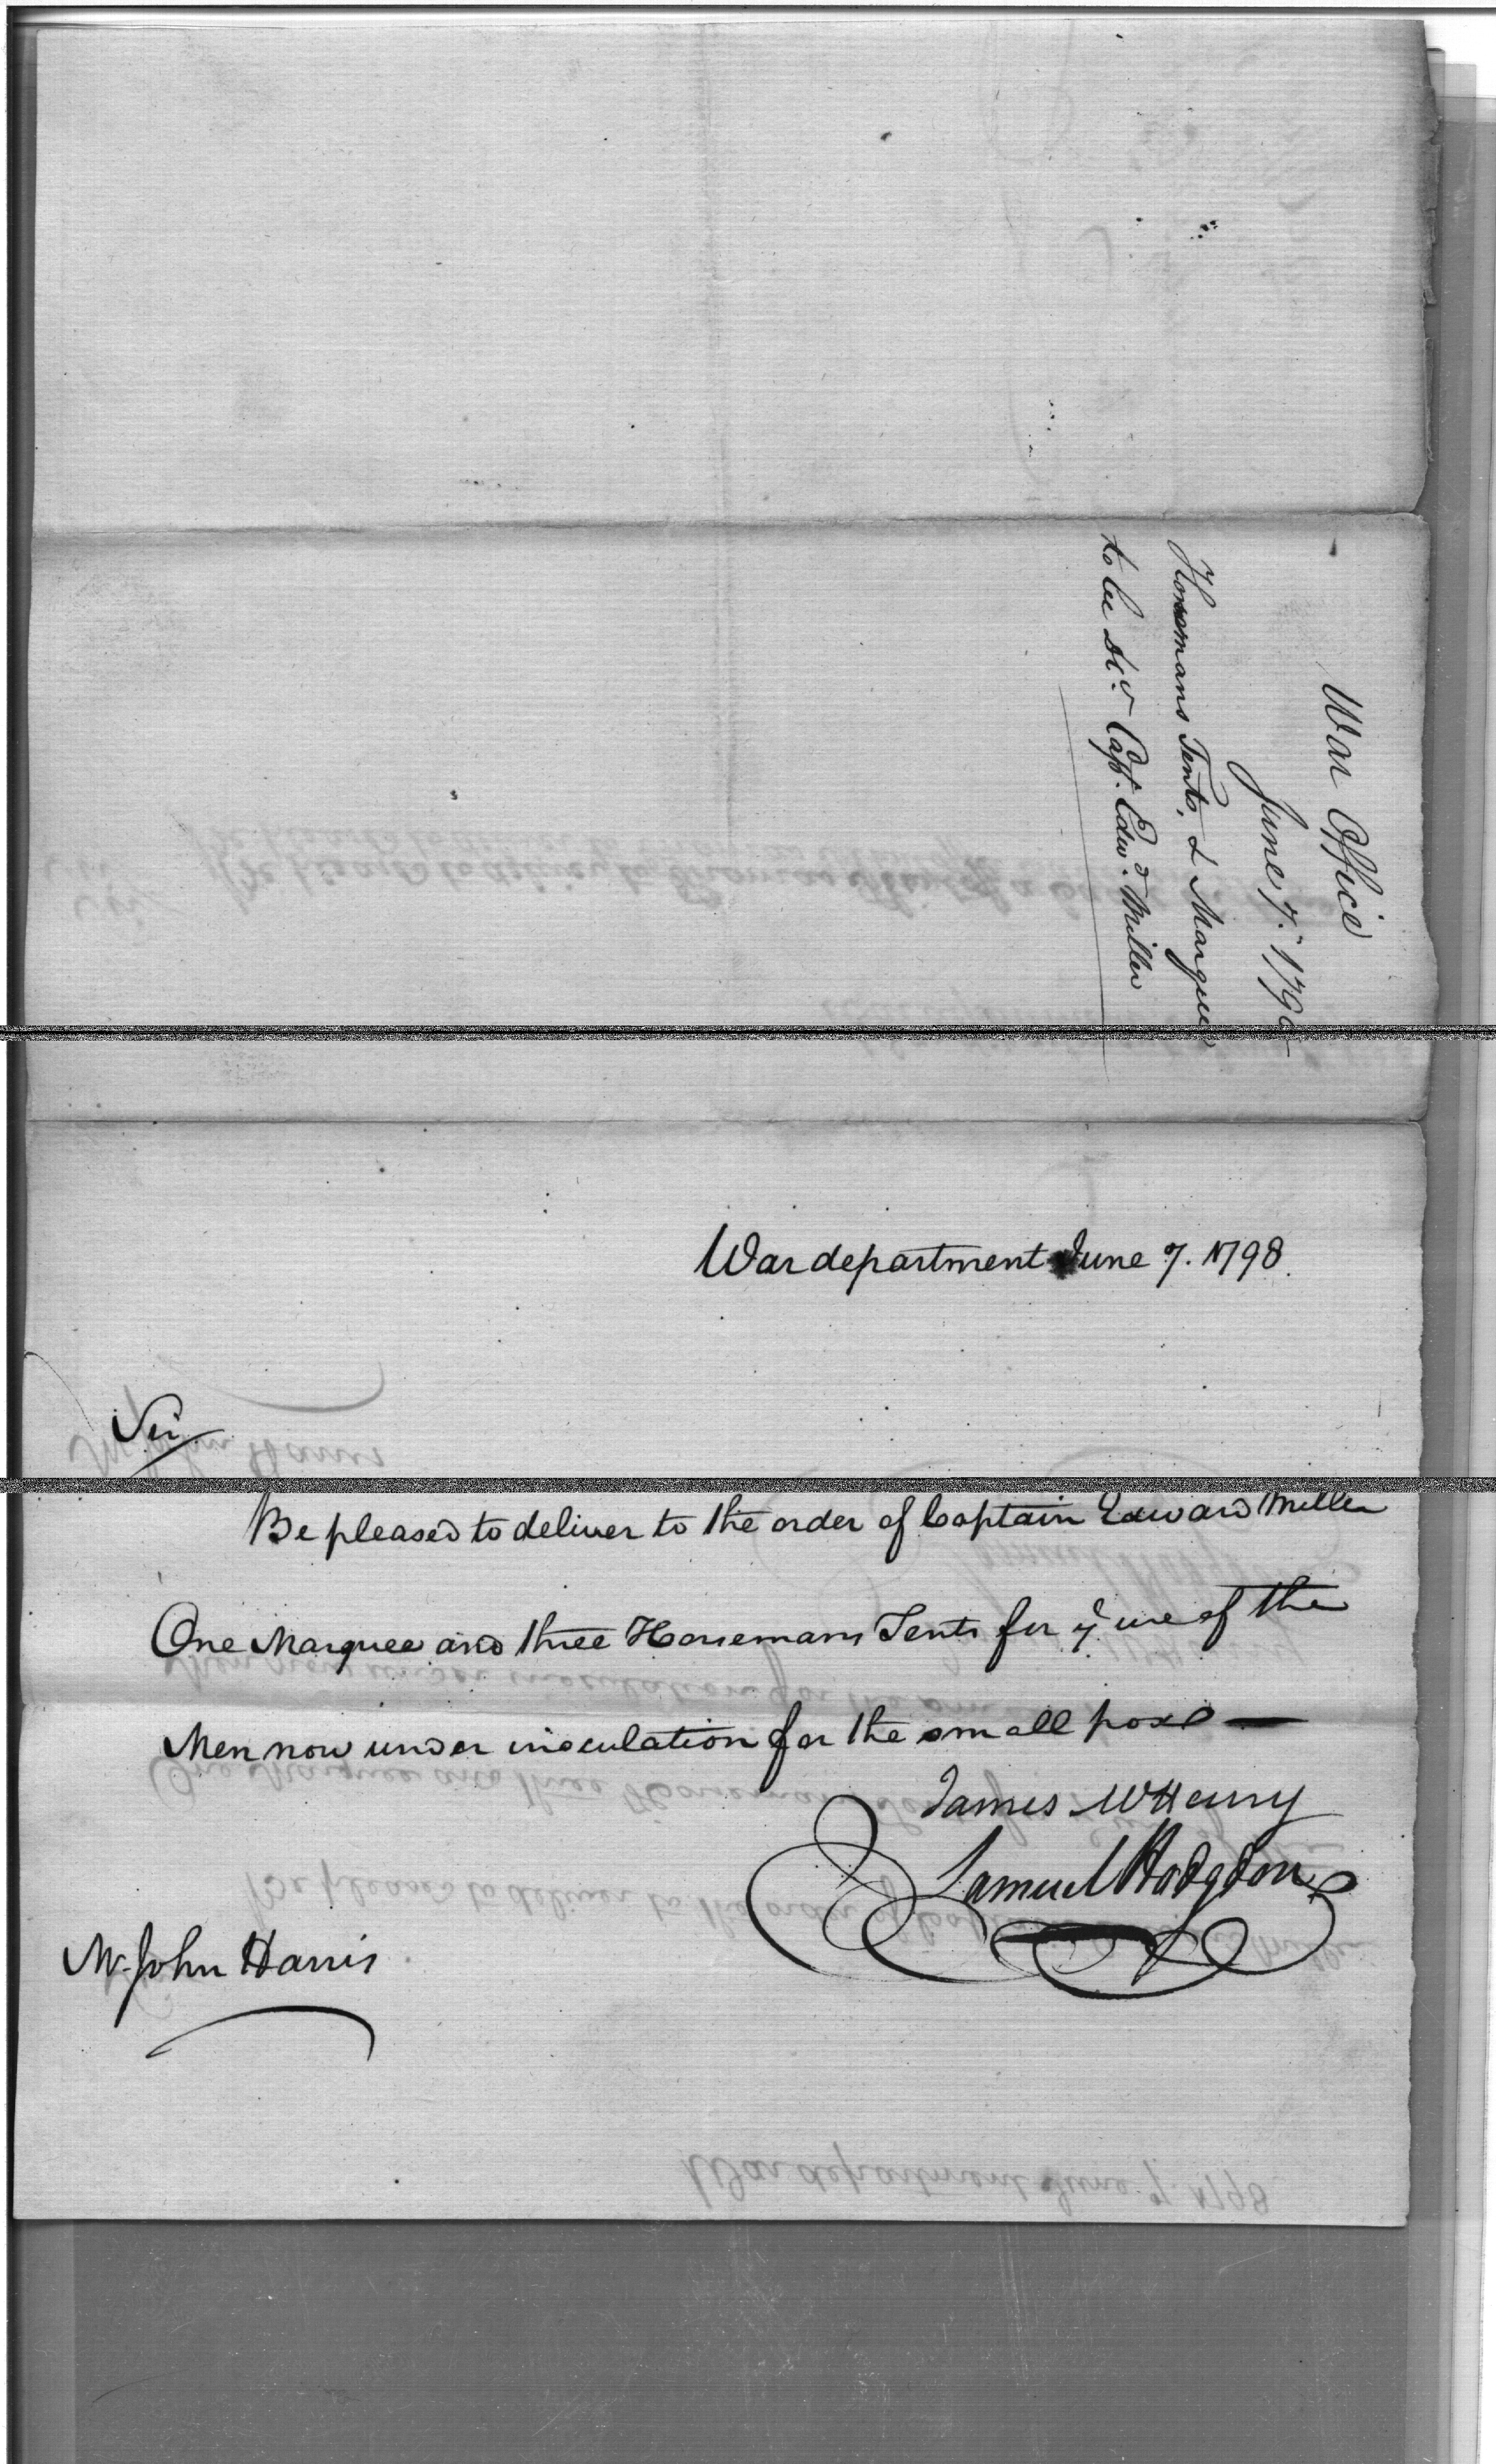 War Office
June 7. 1798
Horsemans Tents, & Marquee
to be del'd Capt. Edwd. Miller
War department June 7. 1798.
Sir
Be pleased to deliver to the order of Captain Edward Miller
One Marquee and three Horsemans Tents for ye use of the
Men now under inoculation for the small pox —
James McHenry
Samuel Hodgdon
Mr John Harris